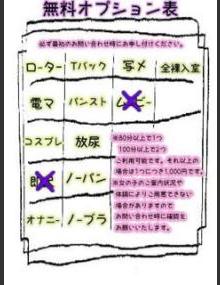 無料オプション表
必ず最初のお問い合わせ時にお申し付けください。
ローター Tバック 写メ 全裸入室
電マ パンスト ムービー
コスプレ 放尿
※80分以上で1つ
100分以上で2つ
ご利用可能です。それ以上の
場合は1つにつき1,000円です。
即 ノーパン
※女の子のご案内状況や
体調によりご用意できない
場合がありますので
お問い合わせ時に確認を
お願いいたします。
オナニー ノーブラ